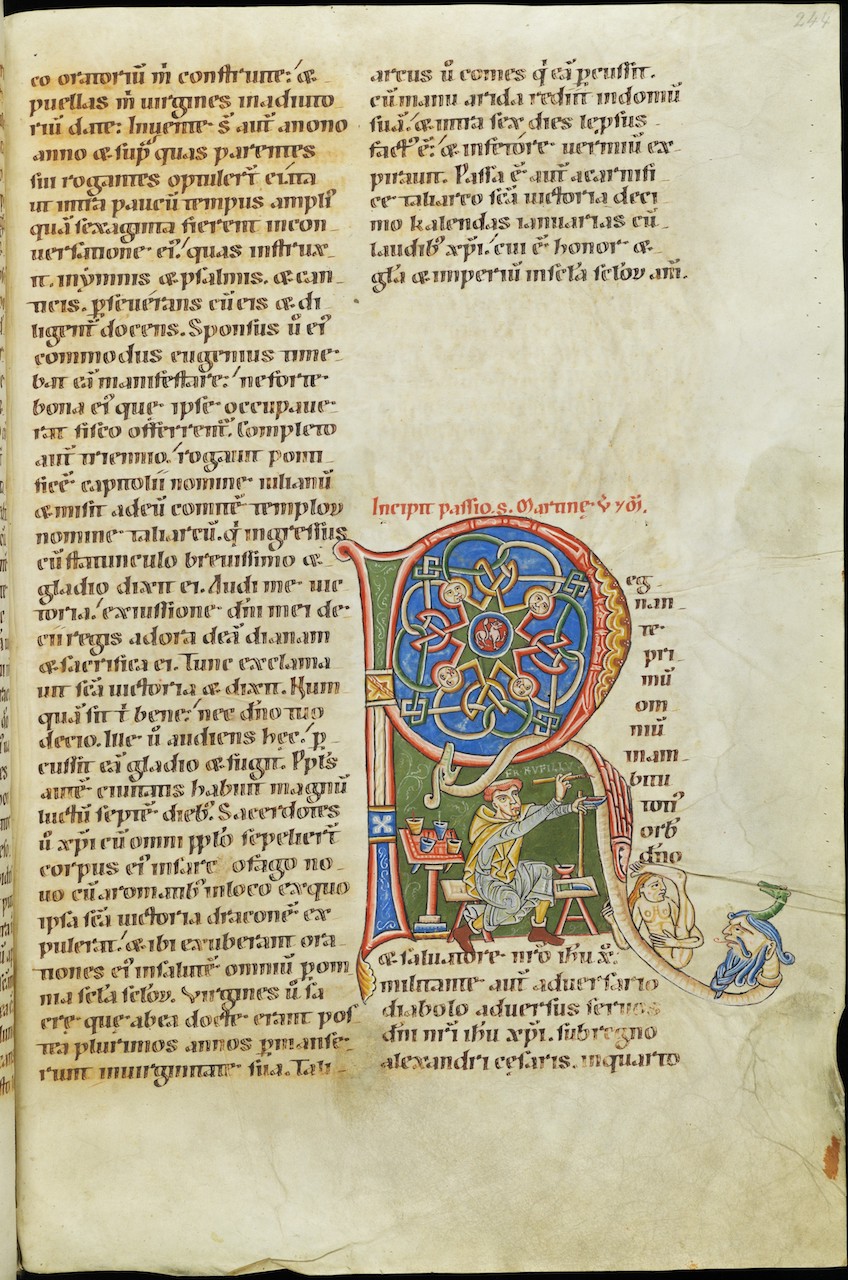 244
eo oratoriū m̄ construite: &
puellas m̄ uirgines inadiuto
riū date: Inuente s̄ aut̄ anono
anno & sup̄ quas parentes
sui rogantes optulert̄ ei. ita
ut intra paucū tempus ampli᾽
quā sexaginta fierent incon
uersatione ei᾽. quas instrux
it. inymnis & psalmis. & can
ticis. ꝑseuerans cū eis & di
ligent̄ docens. Sponsus ū ei᾽
commodus eugenius time
bat eā manifestare: ne forte
bona ei᾽ que ipse occupaue
rat fisco offerrent̄. Completo
aut̄ triennio. rogauit ponti
ficē capitolii nomine iulianū
& misit adeū comitē templou
nomine taliarcū. q̇ ingressus
cū statunculo breuissimo &
gladio dixit ei. Audi me uic
toria. exiussione dn̄i mei de
cii regis adora deā dianam
& sacrifica ei. Tunc exclama
uit sc̄a uictoria & dixit. Num
quā sit t̄ bene: nec dn̄o tuo
decio. Ille ū audiens hec. ꝑ
cussit eā gladio & fugit. Ppl̄s
autē ciuitatis habuit magnū
luctū septē dieb᾽. Sacerdotes
ū xp̄i cū omni ppl̄o sepeliert̄
corpus ei᾽ in sarcofago no
uo cū aromatib᾽ inloco exquo
ipsa sc̄a uictoria draconē ex
pulerat. & ibi exuberant ora
tiones ei᾽ insalutē omniū p om
nia sc̄la sc̄lou. Virgines ū sa
crę que abea doctę erant pos
tea plurimos annos ꝑmanse
runt inuirginitate sua. Tali
arcus ū comes q̇ eā ꝑcussit.
cū manu arida rediit indomū
suā. & intra sex dies leprsus
fact᾽ ē. & infetore uermiū ex
pirauit. Passa ē aut̄ acarnifi
ce taliarco sc̄a uictoria deci
mo kalendas ianuarias cū
laudib᾽ xp̄i. cui ē honor &
gl̄a & imperiū insc̄la sc̄lou am̄.
Incipit passio. s. Martinę
R
eg
nan
te
pri
mū
om
niū
mam
bitu
toti᾽
orb
dn̄o
FR. RVFILL᾽
& saluatore nr̄o ihu x̄:
militante aut̄ aduersario
diabolo aduersus seruos
dn̄i nr̄i ihu xp̄i. sub regno
alexandri cęsaris. inquarto